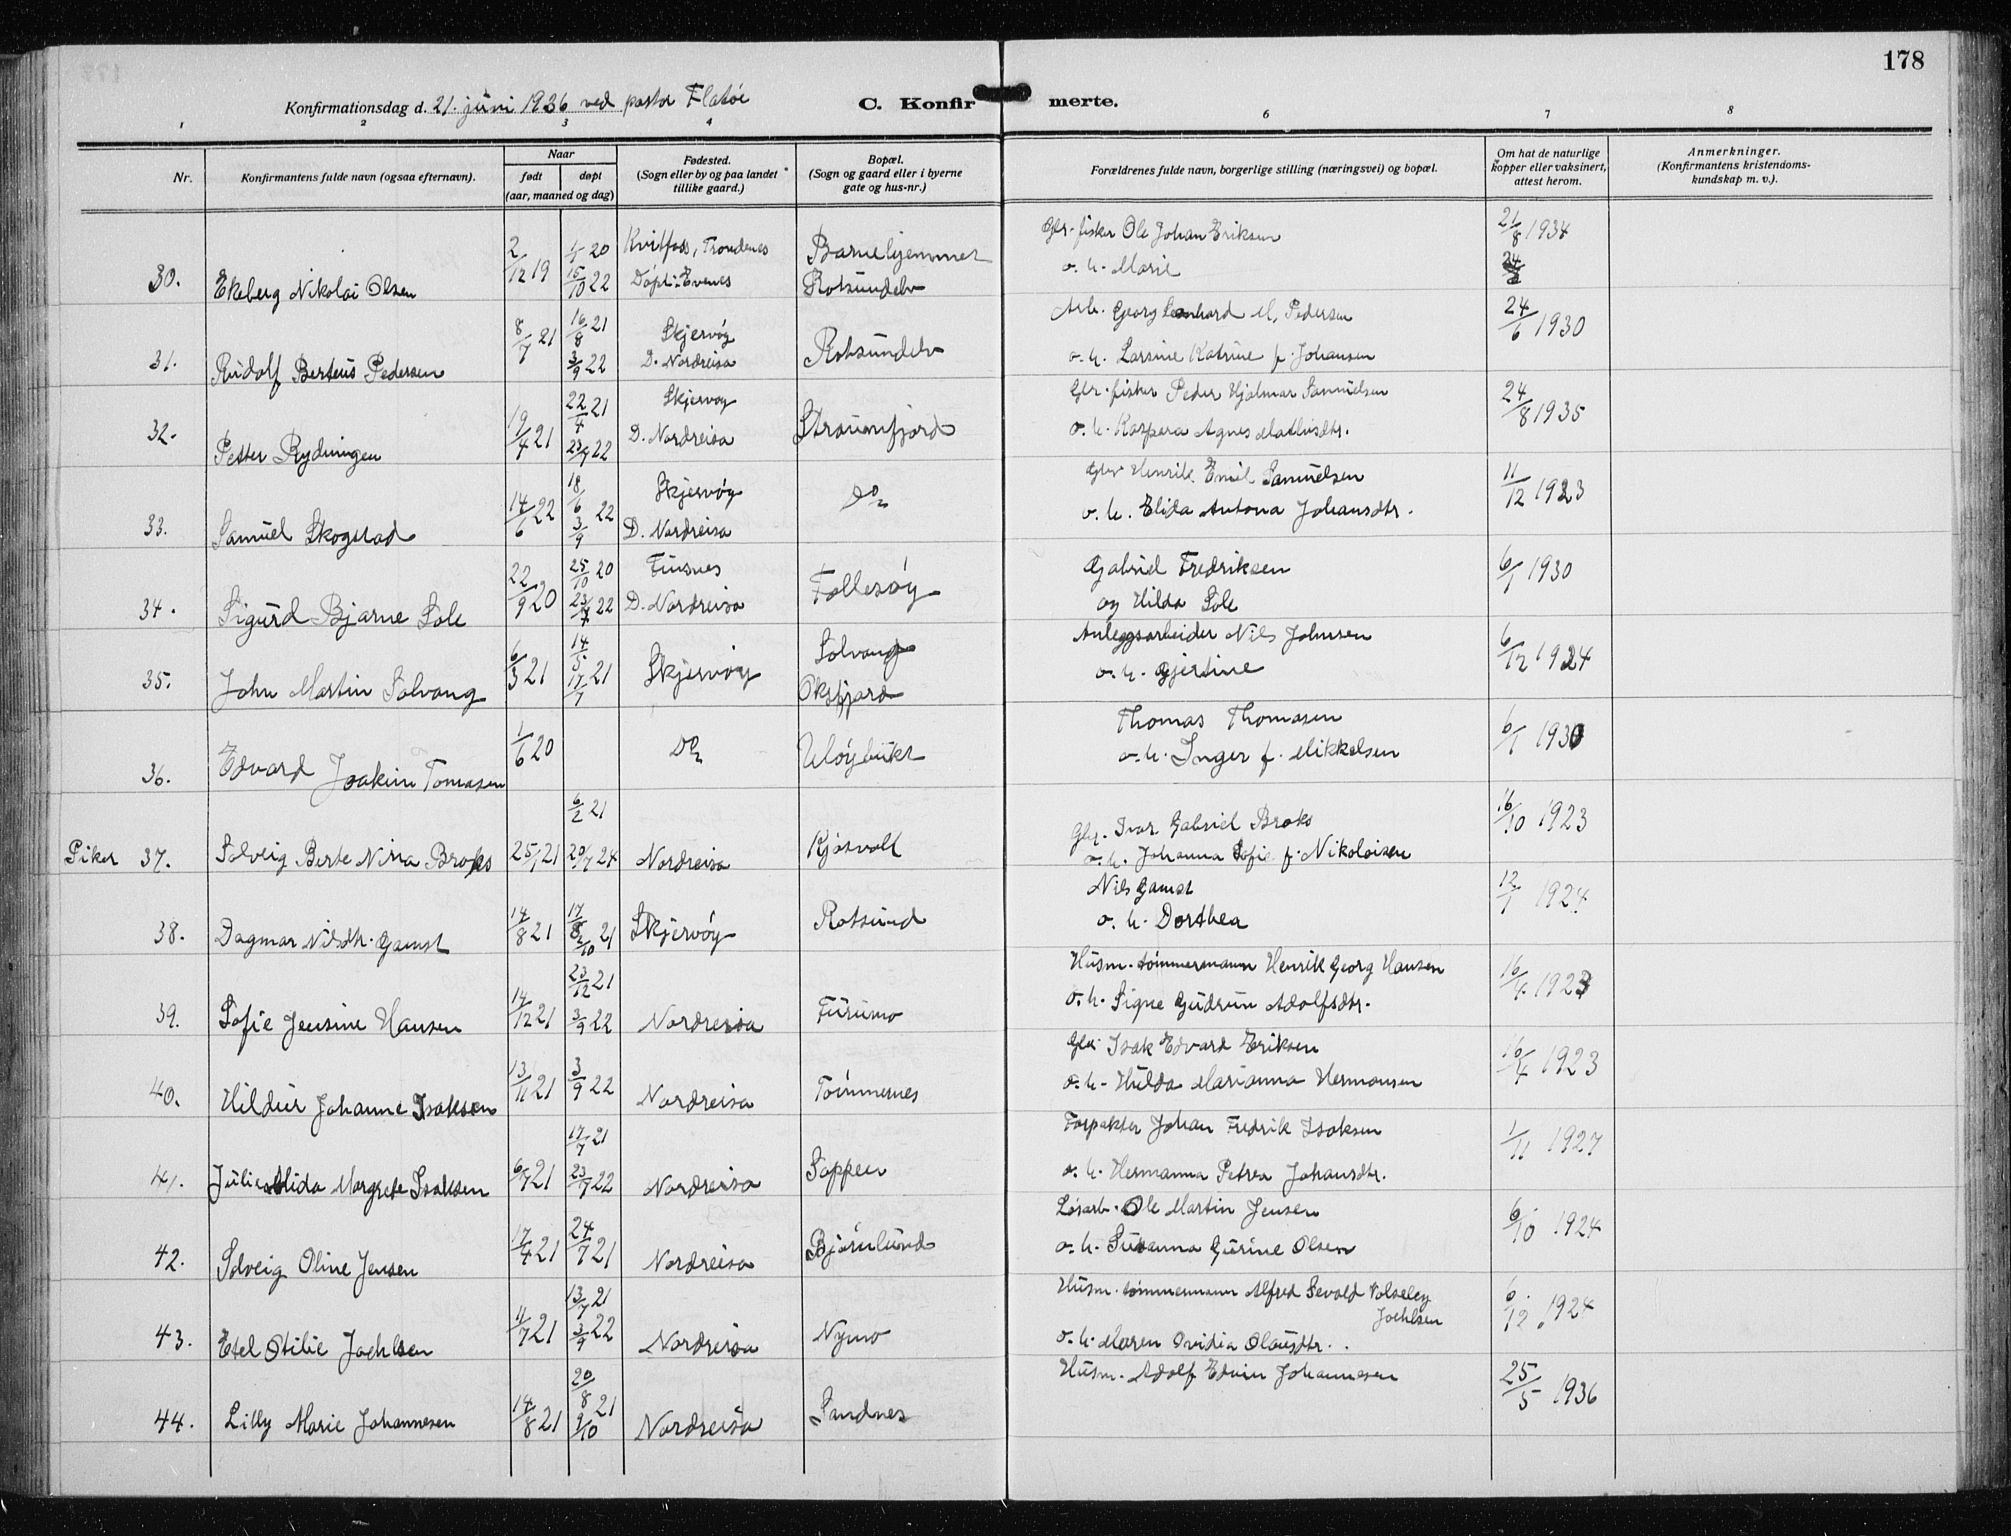 178
Konfirmationsdag d. 21. juni 1936 ved pastor Flatöe
C. Konfirmerte.
1 2 3 4 6 7 8
Nr.
Konfirmantens fulde navn (ogsaa efternavn).
Naar
født
døpt
(aar, maaned og dag)
Fødested.
(Sogn eller by og paa landet
tillike gaard.)
Bopæl.
(Sogn og gaard eller i byerne
gate og hus-nr.)
Forældrenes fulde navn, borgerlige stilling (næringsvei) og bopæl.
Om hat de naturlige
kopper eller vaksinert,
attest herom.
Anmerkninger.
(Konfirmantens kristendoms-
kundskap m. v.).
30. Ekeberg Nikolai Olsen 2/12 19 1/1 20 15/10 22 Kvitfors, Trondenes Döpt: Evenes Barnehjemmet Rotsundelv Gbr-fisker Ole Johan Eriksen o. h. Marie 21/8 1934
31. Rudolf Berteus Pedersen 8/7 21 16/8 21 3/9 22 Skjervöy D. Nordreisa Rotsundelv Arb. Georg Leonhard M. Pedersen o. h. Larsine Katrine f. Johansen 24/6 1930
32. Petter Rydningen 19/4 21 22/4 21 23/7 22 Skjervöy D. Nordreisa Straumfjord Gbr-fisker Peder Hjalmar Samuelsen o. h. Kaspara Agnes Mathisdtr. 24/8 1935
33. Samuel Skogstad 14/6 22 18/6 3/9 22 Skjervöy D. Nordreisa Do Gbr Henrik Emil Samuelsen o. h. Elida Antona Johansdtr. 11/12 1923
34. Sigurd Bjarne Sole 22/9 20 25/10 20 23/7 22 Finsnes D. Nordreisa Follesöy Gabriel Fredriksen og Hilda Sole 6/1 1930
35. John Martin Solvang 6/3 21 14/5 17/7 21 Skjervöy Solvang Oksfjord Anleggsarbeider Nils Johnsen o. h. Gjertine 6/12 1924
36. Edvard Joakim Tomasen 1/6 20 Do Ulöybukt Thomas Thomasen o. h. Inger f. Mikkelsen 6/1 1930
Piker 37. Solveig Berte Nina Broks 25/1 21 6/2 21 20/7 24 Nordreisa Kjosvoll Gbr. Ivar Gabriel Broks o. h. Johanna Sofie f. Nikolaisen 16/10 1923
38. Dagmar Nilsdtr. Gamst 14/8 21 17/8 2/10 21 Skjervöy Rotsund Nils Gamst o. h. Dorthea 12/1 1924
39. Sofie Jensine Hansen 14/12 21 23/12 21 3/9 22 Nordreisa Furumo Husm. tömmermann Henrik Georg Hansen o. h. Signe Gudrun Adolfsdtr. 16/4 1923
40. Hildur Johanne Isaksen 13/11 21 3/9 22 Nordreisa Tömmernes Gbr Isak Edvard Eriksen o. h. Hulda Marianna Hermansen 16/4 1923
41. Julie Alida Margrete Isaksen 6/7 21 17/7 21 23/7 22 Nordreisa Soppen Forpakter Johan Fredrik Isaksen o. h. Hermanna Petrea Johansdtr. 1/11 1927
42. Solveig Oline Jensen 17/4 21 24/7 21 Nordreisa Bjørnlund Løsarb. Ole Martin Jensen o. h. Susanna Gurine Olsen 6/10 1924
43. Etel Otilie Jochlsen 11/7 21 13/7 21 3/9 22 Nordreisa Nymo Husm. tömmermann Alfred Sevald Volseley Jochlsen o. h. Maren Ovidia Olausdtr. 6/12 1924
44. Lilly Marie Johannesen 14/8 21 20/8 21 9/10 Nordreisa Sandnes Husm. Adolf Edvin Johannesen 25/5 1936